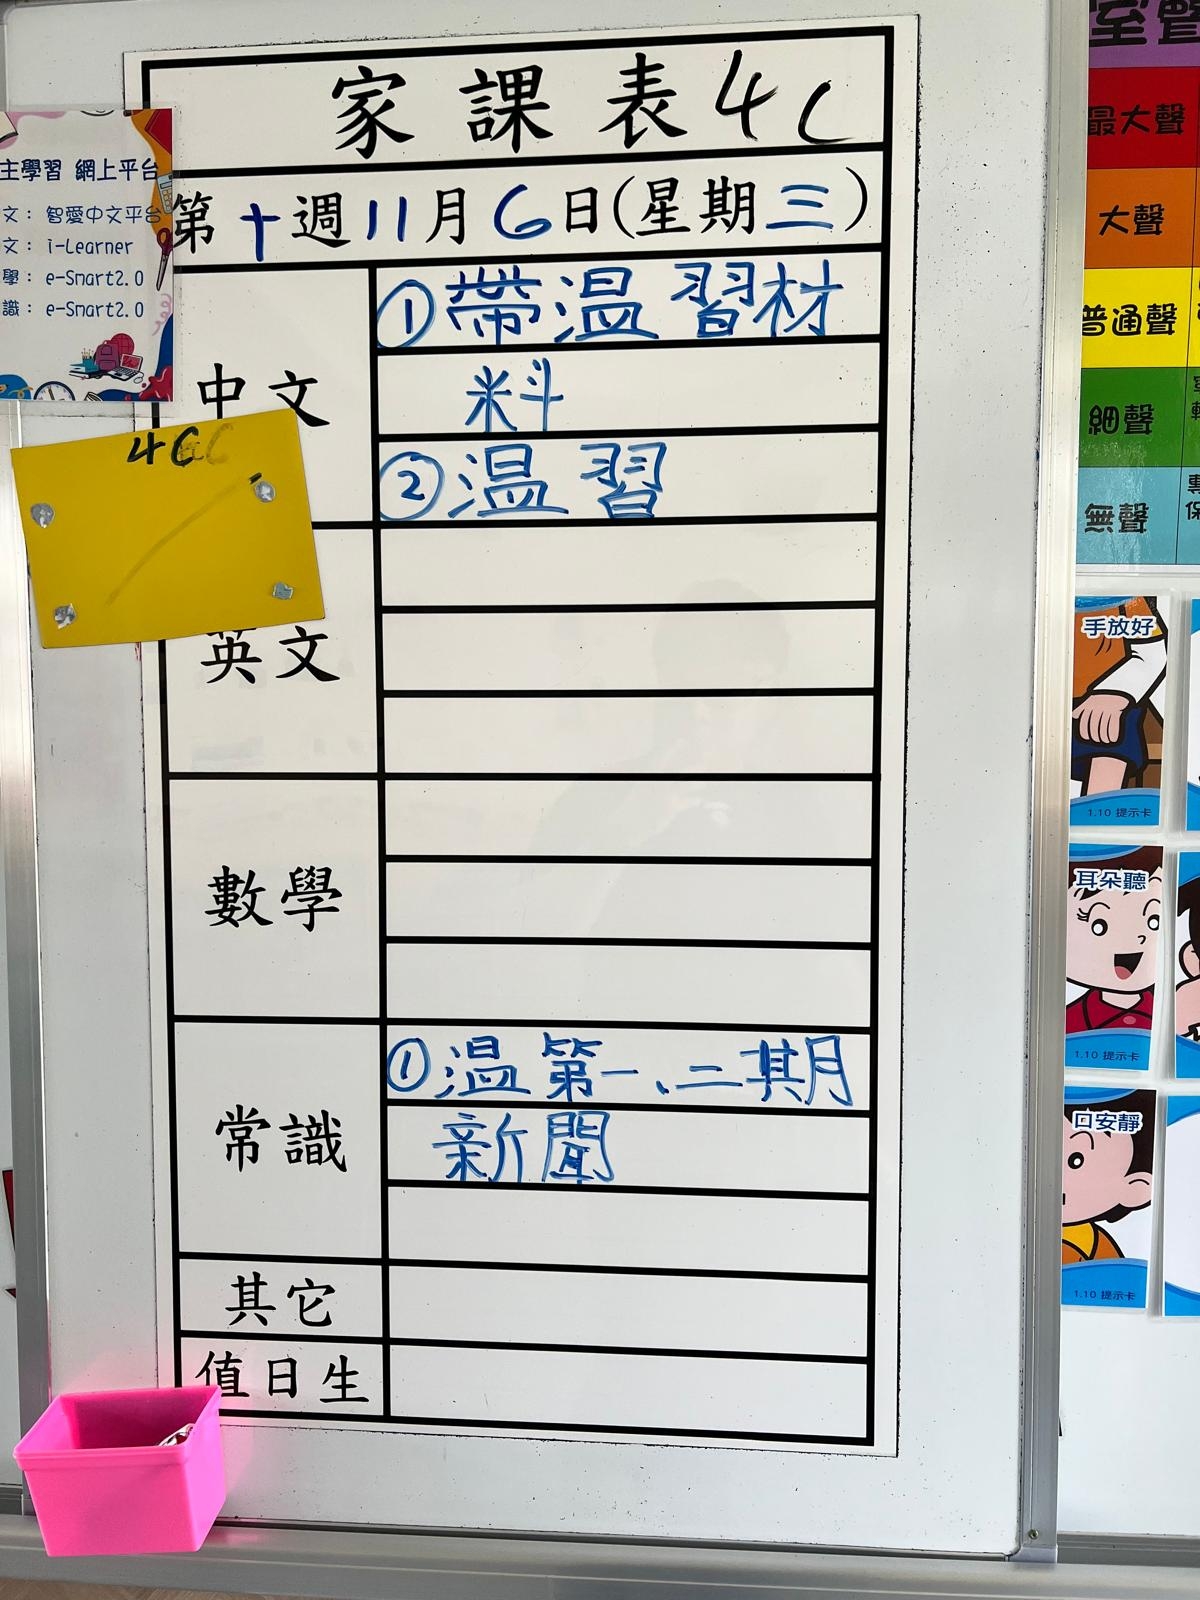 家課表4C
第十週11月6日(星期三)
中文
①帶温習材
料
②温習
英文
數學
常識
①温第一、二期
新聞
其它
值日生
主學習 網上平台
文： 智愛中文平台
文： i-Learner
學： e-Smart2.0
識： e-Smart2.0
4C
室聲
最大聲
大聲
普通聲
細聲
無聲
手放好
1.10 提示卡
耳朵聽
1.10 提示卡
口安靜
1.10 提示卡